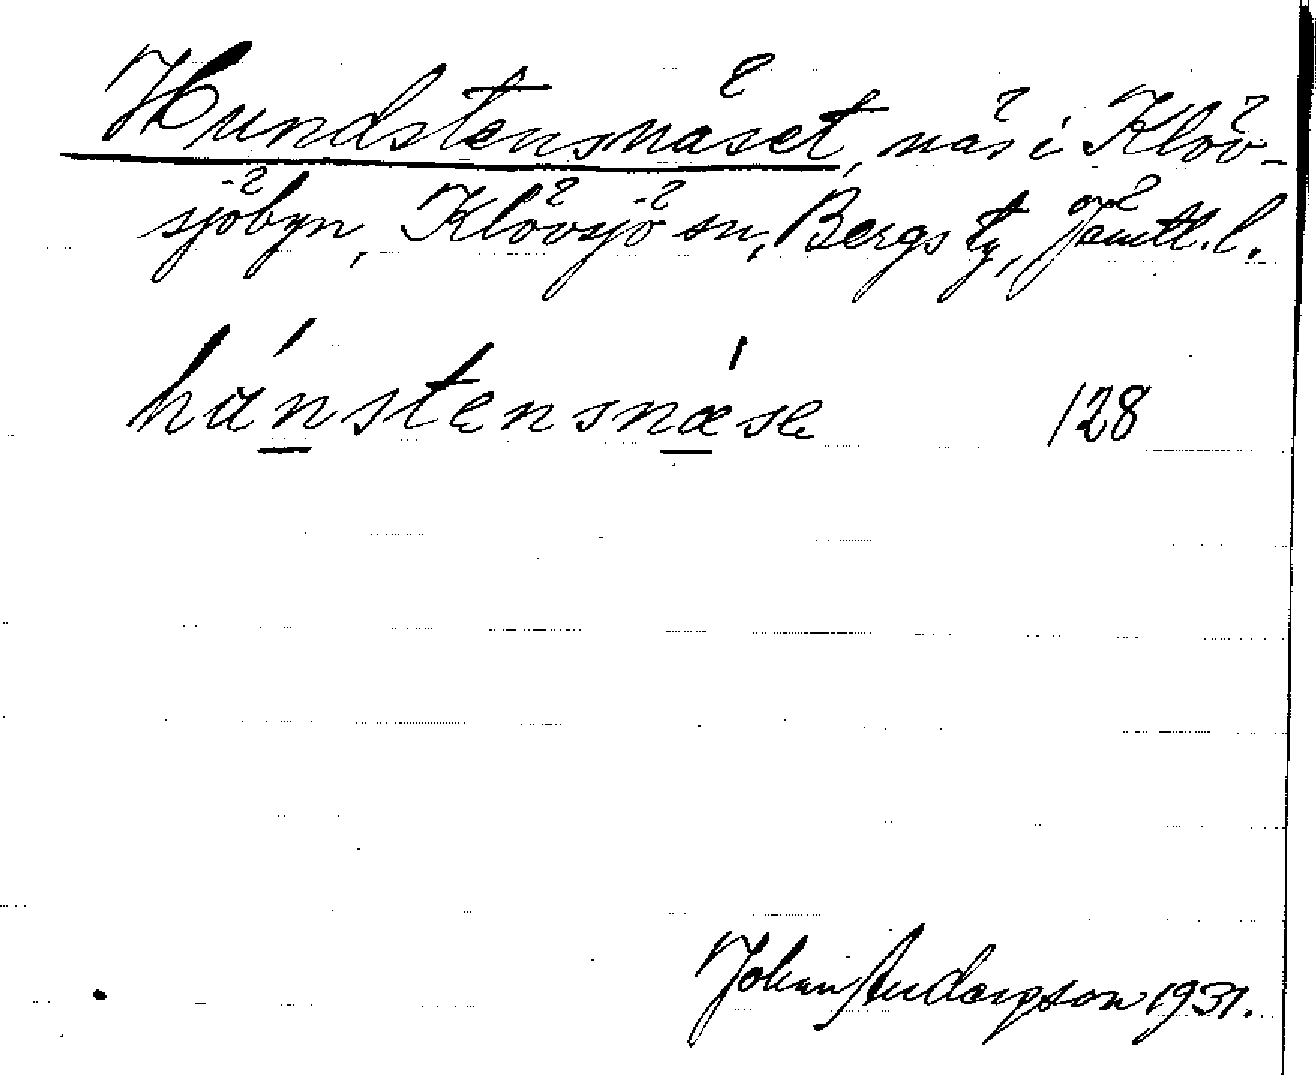 Hundstensnäset, näs i Klöv-
sjöbyn, Klövsjö sn, Bergs tg, Jämtl. l.
hu̲nstensnæ̲se 128
Johan Anderson 1931.